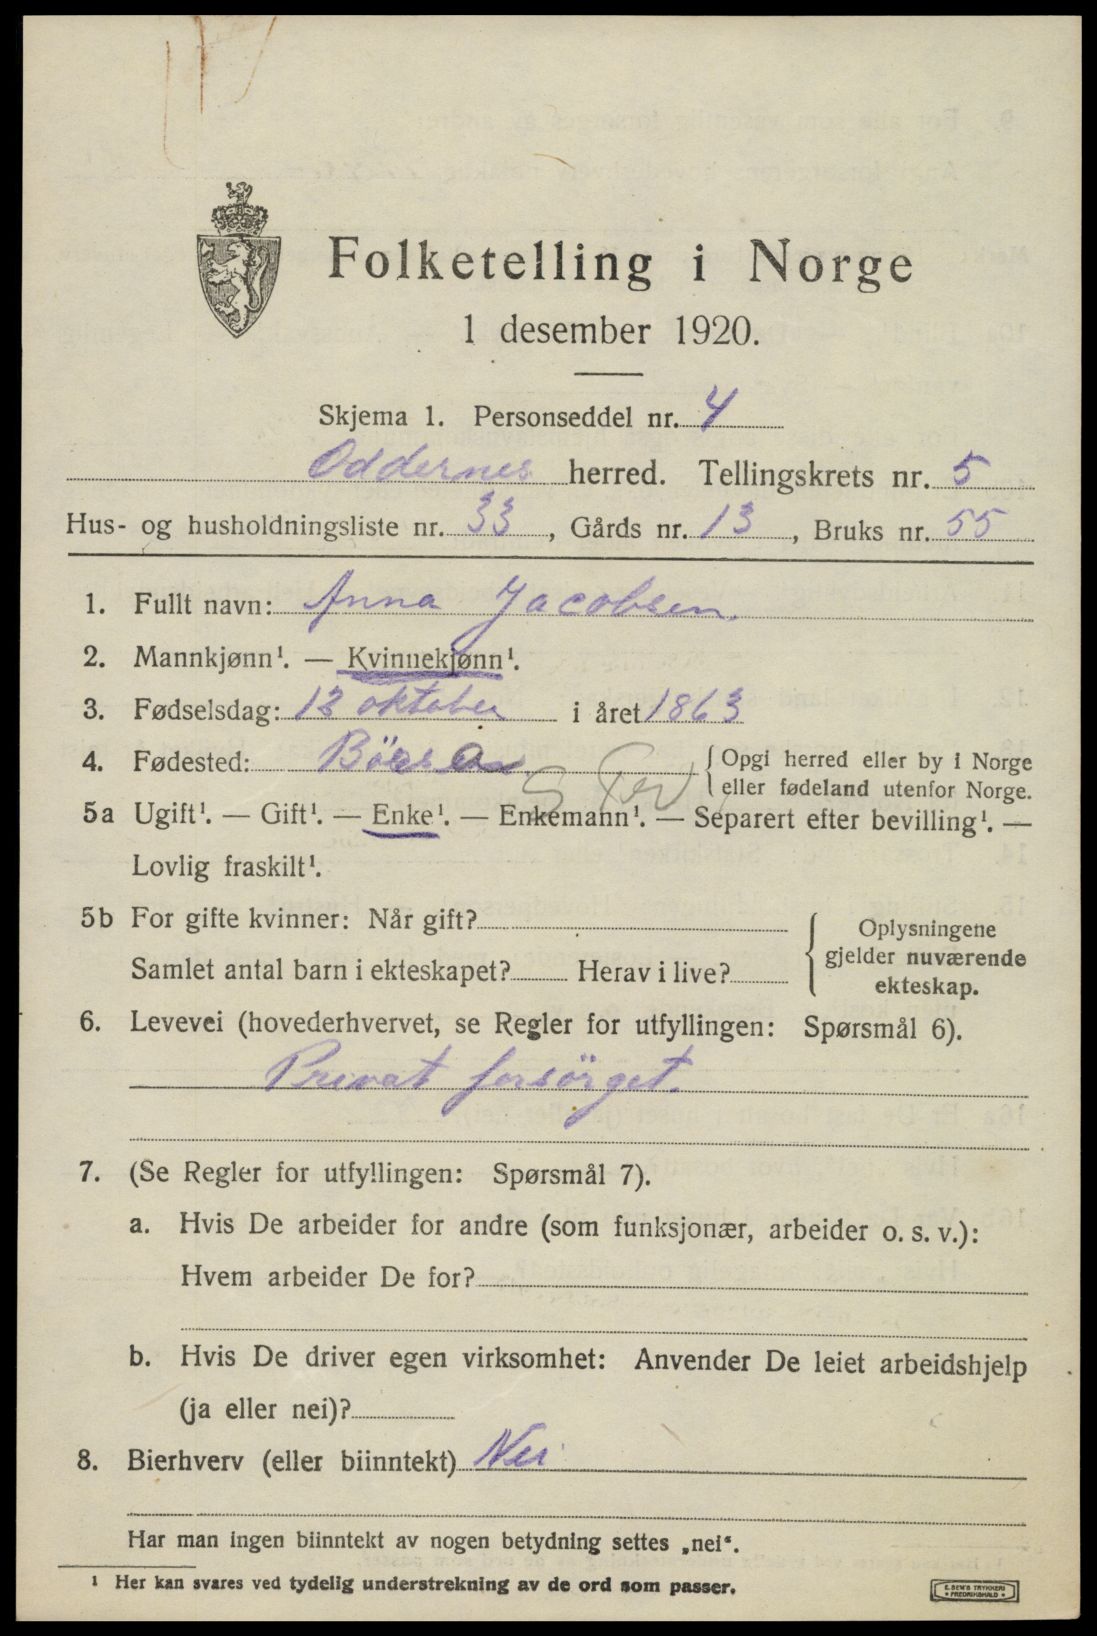 Folketelling i Norge
1 desember 1920.
Skjema 1. Personseddel nr. 4
Oddernes herred. Tellingskrets nr. 5
Hus- og husholdningsliste nr. 33, Gårds nr. 13, Bruks nr. 55
1. Fullt navn: Anna Jacobsen.
2. Mannkjønn¹. — Kvinnekjønn¹.
3. Fødselsdag: 12 oktober i året 1863
4. Fødested: {Opgi herred eller by i Norge
eller fødeland utenfor Norge.
5a Ugift¹. — Gift¹. — Enke¹. — Enkemann¹. — Separert efter bevilling¹. —
Lovlig fraskilt¹.
5b For gifte kvinner: Når gift?
Samlet antal barn i ekteskapet? Herav i live?
{Oplysningene
gjelder nuværende
ekteskap.
6. Levevei (hovederhvervet, se Regler for utfyllingen: Spørsmål 6).
Privat forsörget.
7. (Se Regler for utfyllingen: Spørsmål 7).
a. Hvis De arbeider for andre (som funksjonær, arbeider o. s. v.):
Hvem arbeider De for?
b. Hvis De driver egen virksomhet: Anvender De leiet arbeidshjelp
(ja eller nei)?
8. Bierhverv (eller biinntekt) Nei
Har man ingen biinntekt av nogen betydning settes „nei“.
¹ Her kan svares ved tydelig understrekning av de ord som passer.
E. SEM'S TRYKKERI
• FREDRIKSHALD •